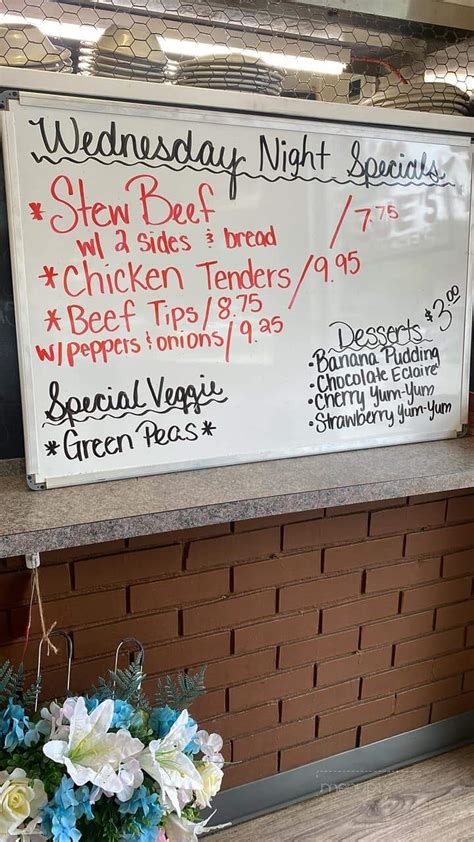 Wednesday Night Specials
* Stew Beef / 7.75
w/ 2 sides & bread
* Chicken Tenders / 9.95
* Beef Tips / 8.75
w/ peppers & onions / 9.25
Special Veggie
* Green Peas *
Desserts $3.00
• Banana Pudding
• Chocolate Eclaire
• Cherry Yum-Yum
• Strawberry Yum-Yum